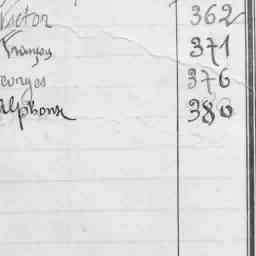 Victor 362
François 371
eorges 376
Alphonse 380